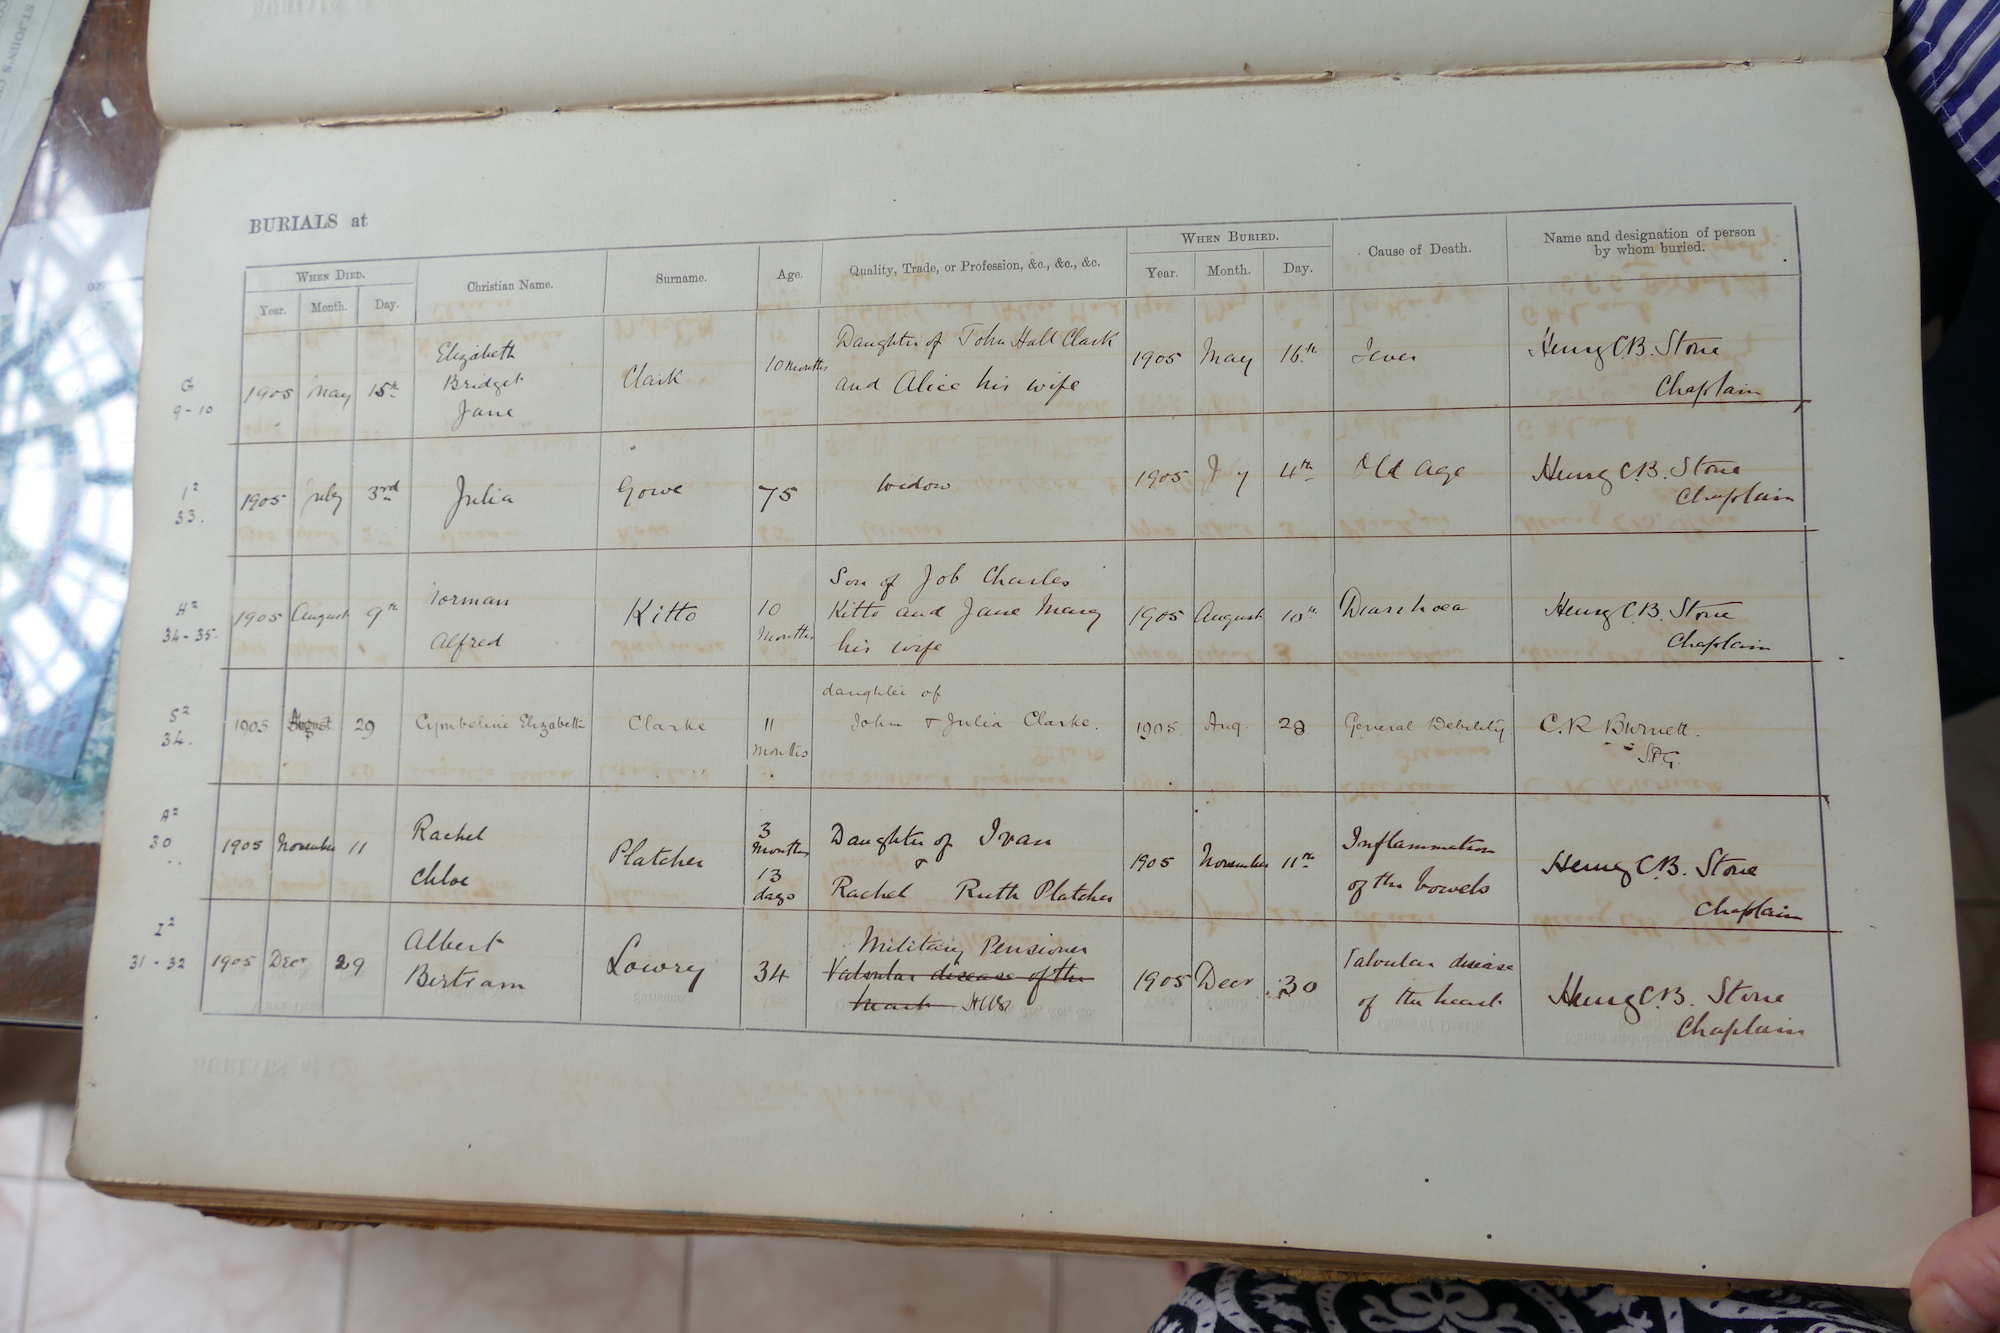 ST. JOHN'S C
BURIALS at
WHEN DIED. Christian Name. Surname. Age. Quality, Trade, or Profession, &c., &c., &c. WHEN BURIED. Cause of Death. Name and designation of person by whom buried.
Year. Month. Day. Year. Month. Day.
G 9-10
1905 May 15th
Elizabeth
Bridget
Jane
Clark
10 months
Daughter of John Hall Clark
and Alice his wife
1905 May 16th
Fever
Henry C.B. Stone
Chaplain
I2 33.
1905 July 3rd
Julia
Gowe
75
Widow
1905 Jy 4th
Old age
Henry C.B. Stone
Chaplain
H2 34-35.
1905 August 9th
Norman
Alfred
Kitto
10
Months
Son of Job Charles
Kitto and Jane Mary
his wife
1905 August 10th
Diarrhoea
Henry C.B. Stone
Chaplain
S2 34.
1905 August 29
Cymbeline Elizabeth
Clarke
11
months
daughter of
John & Julia Clarke.
1905 Aug. 29
General Debility
C. R. Burnett.
S.P.G.
A2 30
1905 November 11
Rachel
Chloe
Platcher
3
months
13
days
Daughter of Ivan
&
Rachel Ruth Platcher
1905 November 11th
Inflammation
of the bowels
Henry C.B. Stone
Chaplain
I2 31-32
1905 Decr 29
Albert
Bertram
Lowry
34
Military Pensioner
Valvular disease of the
heart
1905 Decr 30
Valvular disease
of the heart
Henry C.B. Stone
Chaplain